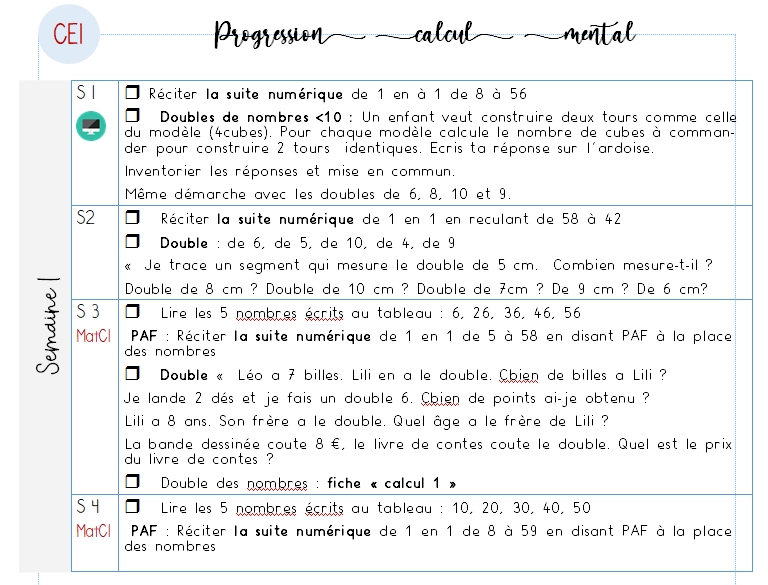 CE1
Progression calcul mental
Semaine 1
S 1
❒ Réciter la suite numérique de 1 en à 1 de 8 à 56
❒ Doubles de nombres <10 : Un enfant veut construire deux tours comme celle
du modèle (4cubes). Pour chaque modèle calcule le nombre de cubes à comman-
der pour construire 2 tours identiques. Ecris ta réponse sur l'ardoise.
Inventorier les réponses et mise en commun.
Même démarche avec les doubles de 6, 8, 10 et 9.
S2
❒ Réciter la suite numérique de 1 en 1 en reculant de 58 à 42
❒ Double : de 6, de 5, de 10, de 4, de 9
« Je trace un segment qui mesure le double de 5 cm. Combien mesure-t-il ?
Double de 8 cm ? Double de 10 cm ? Double de 7cm ? De 9 cm ? De 6 cm?
S 3
MatCl
❒ Lire les 5 nombres écrits au tableau : 6, 26, 36, 46, 56
PAF : Réciter la suite numérique de 1 en 1 de 5 à 58 en disant PAF à la place
des nombres
❒ Double « Léo a 7 billes. Lili en a le double. Cbien de billes a Lili ?
Je lande 2 dés et je fais un double 6. Cbien de points ai-je obtenu ?
Lili a 8 ans. Son frère a le double. Quel âge a le frère de Lili ?
La bande dessinée coute 8 €, le livre de contes coute le double. Quel est le prix
du livre de contes ?
❒ Double des nombres : fiche « calcul 1 »
S 4
MatCl
❒ Lire les 5 nombres écrits au tableau : 10, 20, 30, 40, 50
PAF : Réciter la suite numérique de 1 en 1 de 8 à 59 en disant PAF à la place
des nombres